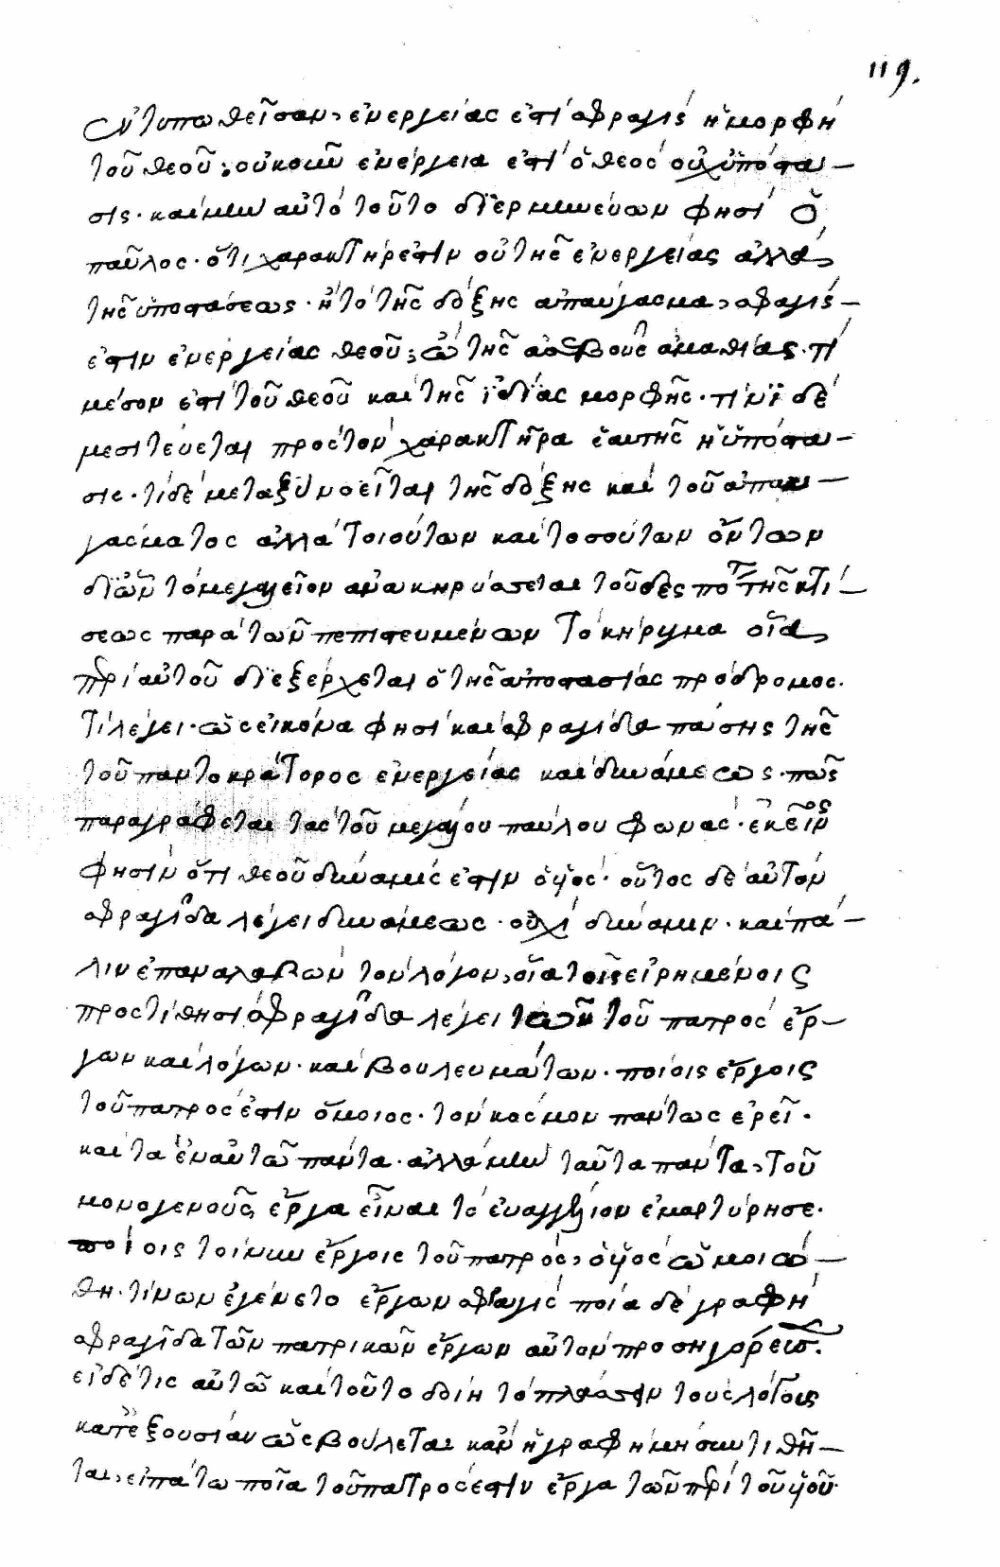 119.
ἐντυπωθεῖσαν, ἐνεργείας ἐστὶ σφραγὶς ἡ μορφὴ
τοῦ θεοῦ; οὐκοῦν ἐνέργεια ἐστὶ ὁ θεὸς οὐχ ὑπόστα—
σις. καὶ μὴν αὐτὸ τοῦτο διερμηνεύων φησὶ ὁ
παῦλος. ὅτι χαρακτήρ ἐστιν οὐ τῆς ἐνεργείας ἀλλὰ,
τῆς ὑποστάσεως. ἢ τὸ τῆς δόξης ἀπαύγασμα, σφραγίς—
ἐστιν ἐνεργείας θεοῦ; ὢ τῆς ἀσεβοῦς ἀμαθίας. τί
μέσον ἐστὶ τοῦ θεοῦ καὶ τῆς ἰδίας μορφῆς. τίνι δὲ
μεσιτεύεται πρὸς τὸν χαρακτῆρα ἑαυτῆς ἡ ὑπόστα—
σις. τί δὲ μεταξὺ νοεῖται τῆς δόξης καὶ τοῦ ἀπαυ—
γάσματος ἀλλὰ τοιούτων καὶ τοσούτων ὄντων
δι ὧν τὸ μεγαλεῖον ἀνακηρύσσεται τοῦ δεσπότου τῆς κτί—
σεως παρὰ τῶν πεπιστευμένων τὸ κήρυγμα οἷα,
περὶ αὐτοῦ διεξέρχεται ὁ τῆς ἀποστασίας πρόδρομος.
τί λέγει. ὡς εἰκόνα φησὶ καὶ σφραγίδα πάσης τῆς
τοῦ παντοκράτορος ἐνεργείας καὶ δυνάμεως. πῶς
παραγράφεται τὰς τοῦ μεγάλου παύλου φωνάς. ἐκεῖνος
φησὶν ὅτι θεοῦ δύναμίς ἐστιν ὁ υἱός. οὗτος δὲ αὐτὸν
σφραγῖδα λέγει δυνάμεως. οὐχὶ δύναμιν. καὶ πά—
λιν ἐπαναλαβὼν τὸν λόγον, οἷα τοῖς εἰρημένοις
προστίθησι σφραγῖδα λέγει τῶν τοῦ πατρὸς ἔρ—
γων καὶ λόγων. καὶ βουλευμάτων. ποίοις ἔργοις
τοῦ πατρός ἐστιν ὅμοιος. τὸν κόσμον πάντως ἐρεῖ.
καὶ τὰ ἐν αὐτῷ πάντα. ἀλλὰ μὴν ταῦτα πάντα, τοῦ
μονογενοῦς ἔργα εἶναι τὸ εὐαγγέλιον ἐμαρτύρησε.
ποίοις τοίνυν ἔργοις τοῦ πατρὸς, ὁ υἱὸς ὡμοιώ—
θη. τίνων ἐγένετο ἔργων σφραγὶς ποία δὲ γραφὴ
σφραγῖδα τῶν πατρικῶν ἔργων αὐτὸν προσηγόρευσε.
εἰ δέ τις αὐτῷ καὶ τοῦτο δοίη τὸ πλάσειν τοὺς λόγους
κατ ἐξουσίαν ὡς βούλεται κἂν ἡ γραφὴ μὴ συντιθῆ—
ται, εἰπάτω ποῖα τοῦ πατρός ἐστιν ἔργα τῶν περὶ τοῦ υἱοῦ